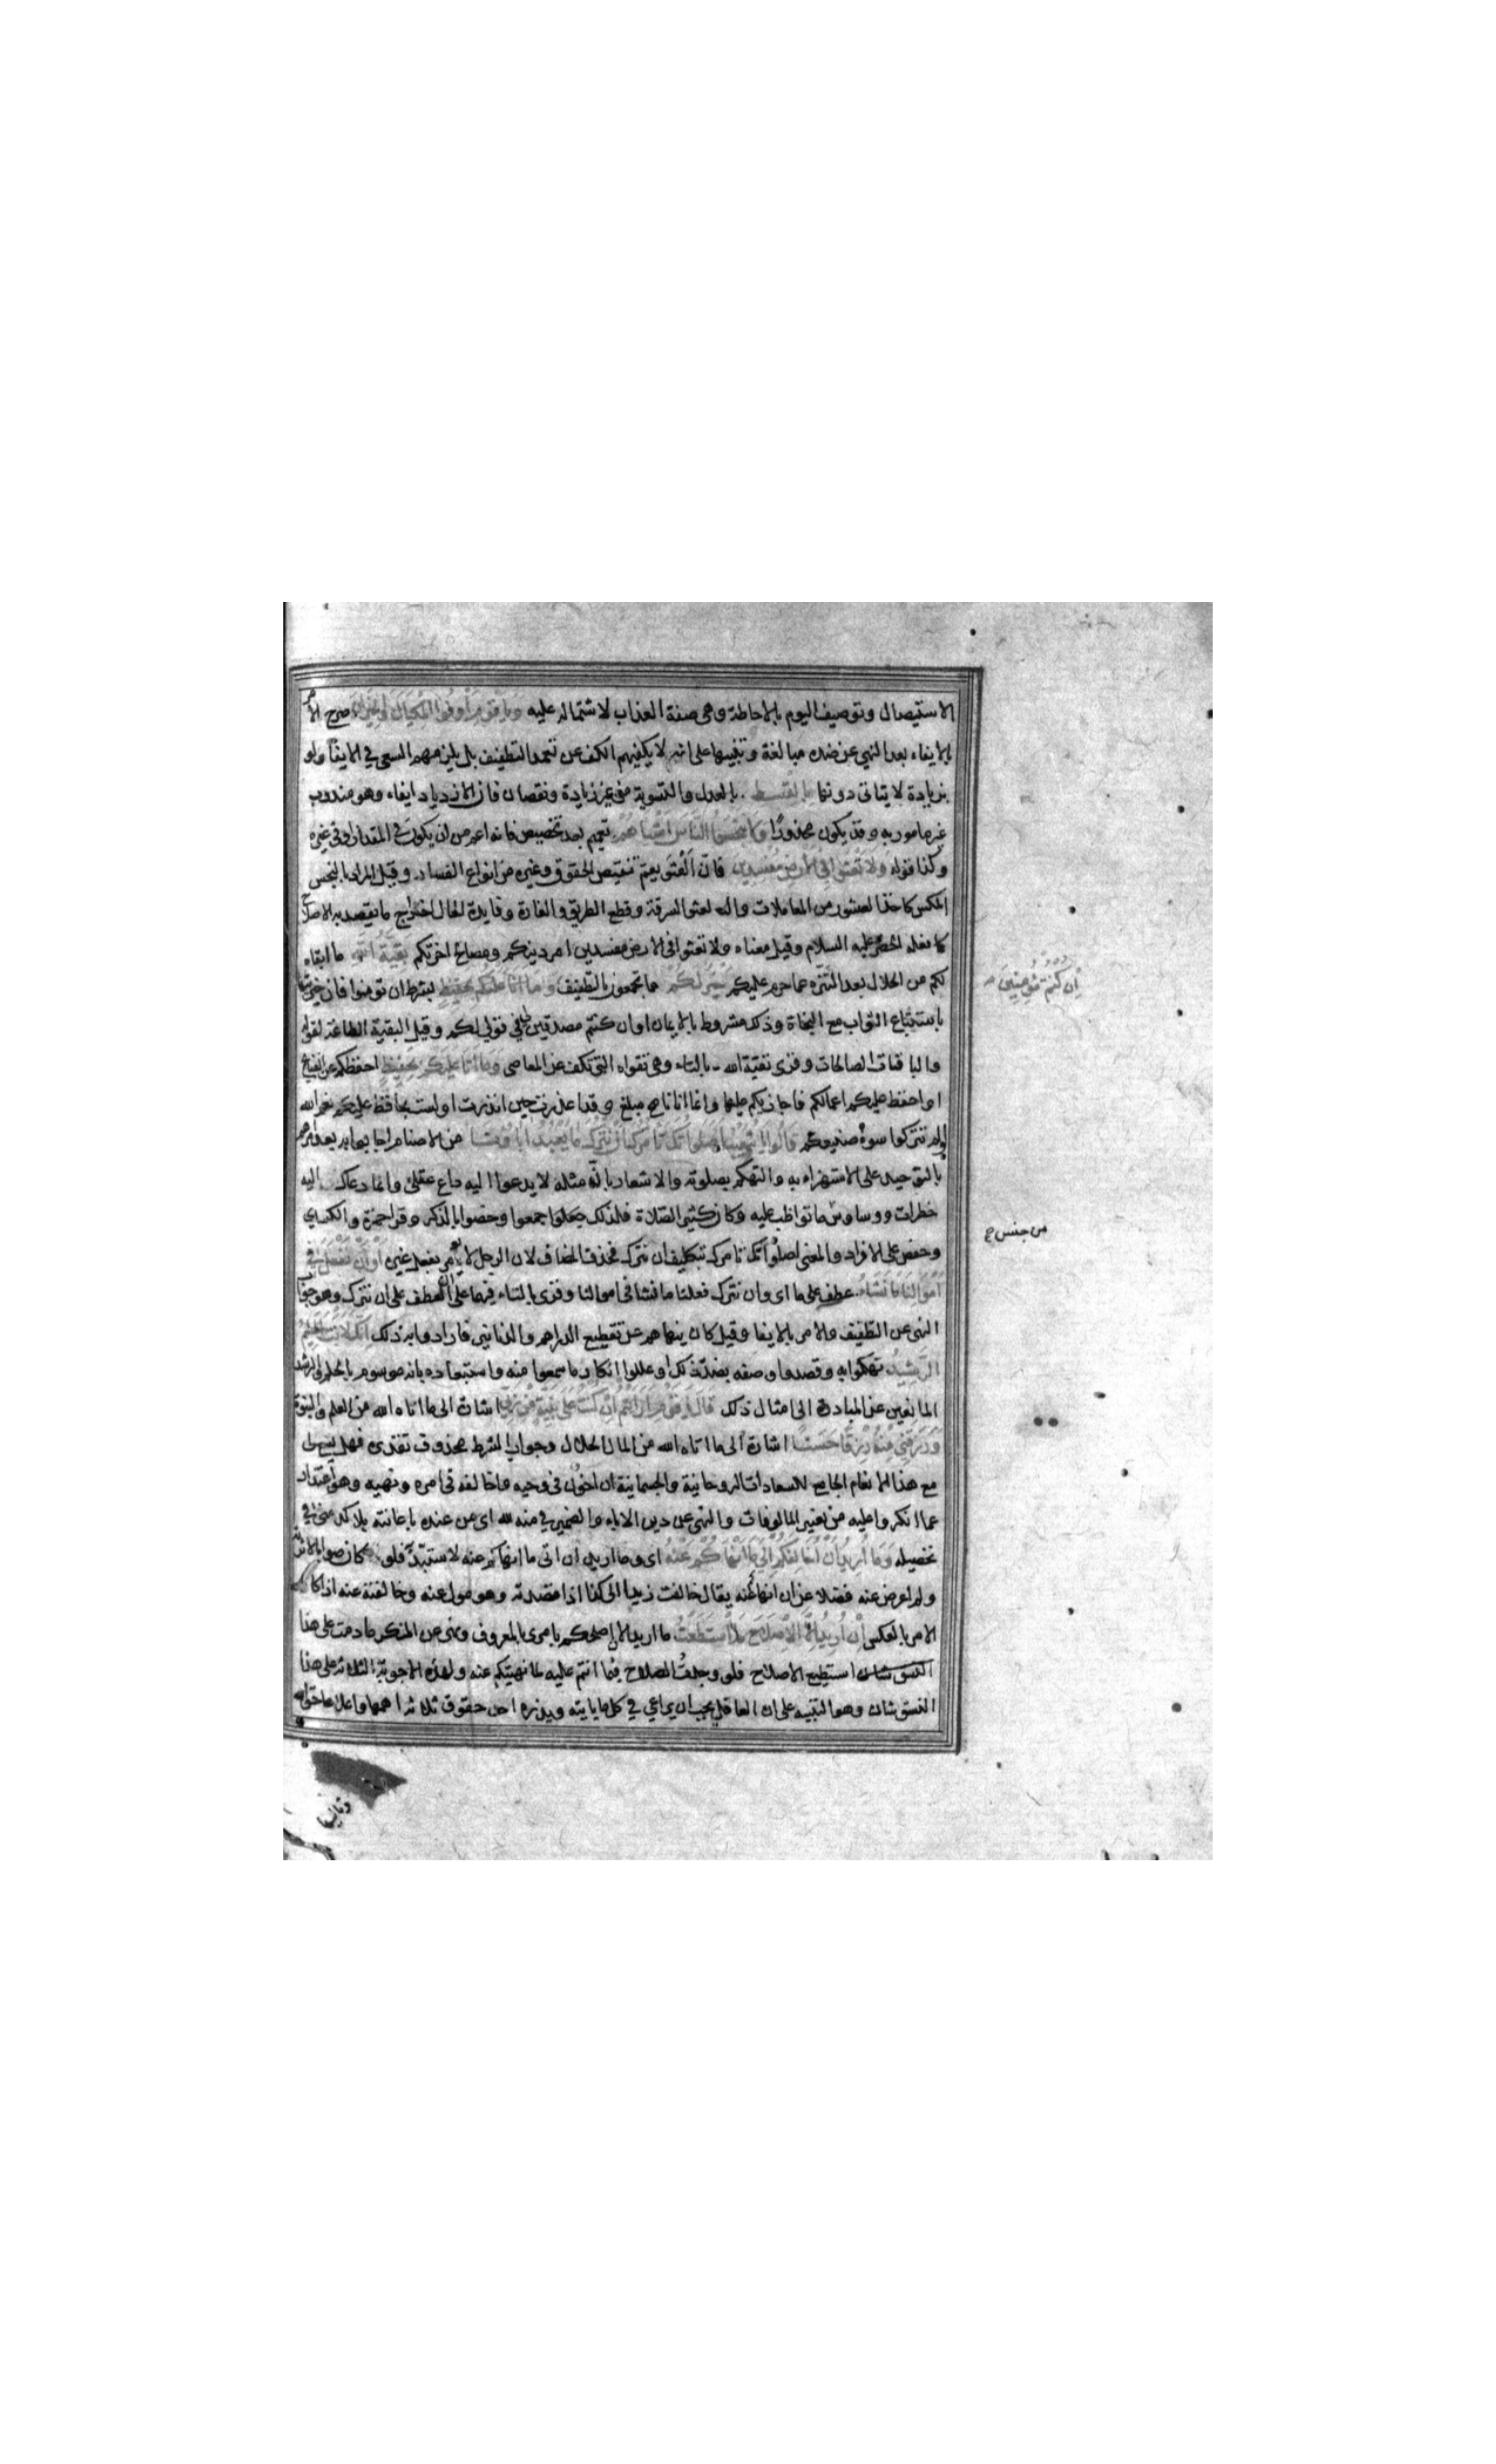 الاستيصال وتوصيف اليوم بالاحاطة وهى صفة العذاب لاشتماله عليه وَيَا قَوْمِ أَوْفُوا الْمِكْيَالَ وَالْمِيزَانَ صرح الامر
بالايفاء بعد النهي عن ضده مبالغة وتنبيها على انه لا يكفيهم الكف عن تعمد التطفيف بل يلزمهم السعى في الايفا ولو
بزيادة لا يتاتى دونها بِالْقِسْطِ بالعدل والتسوية من غير زيادة ونقصان فان الازدياد ايفاء وهو مندوب
غير مامور به وقد يكون محذورًا وَلَا تَبْخَسُوا النَّاسَ أَشْيَاءَهُمْ تعميم بعد تخصيص فانه اعم من ان يكون في المقدار او في غيره
وكذا قوله وَلَا تَعْثَوْا فِي الْأَرْضِ مُفْسِدِينَ فان العثو يعم تنقيص الحقوق وغيره من انواع الفساد وقيل المراد بالبخس
المكس كاخذ العشور من المعاملات والعثو السرقة وقطع الطريق والغارة وفايدة الحال اخراج ما يقصد به الاصلاح
كما فعله الخضر عليه السلام وقيل معناه ولا تعثوا في الارض مفسدين امر دينكم ومصالح اخرتكم بَقِيَّةُ اللَّهِ ما ابقاه
لكم من الحلال بعد التنزه عما حرم عليكم خَيْرٌ لَكُمْ مما تجمعون بالتطفيف وَمَا أَنَا عَلَيْكُمْ بِحَفِيظٍ بشرط ان تومنوا فان خيريتها
إِنْ كُنْتُمْ مُؤْمِنِينَ
باستتباع الثواب مع النجاة وذلك مشروط بالايمان او ان كنتم مصدقين لي في قولي لكم وقيل البقية الطاعة لقوله
والباقيات الصالحات وقرى تقية الله بالتاء وهى تقواه التى تكف عن المعاصى وَمَا أَنَا عَلَيْكُمْ بِحَفِيظٍ احفظكم عن القبايح
او احفظ عليكم اعمالكم فاجازيكم عليها وانما انا ناصح مبلغ وقد اعذرت حين انذرت او لست بحافظ عليكم نعم الله
لو لم تتركوا سوء صنيعكم قَالُوا يَا شُعَيْبُ أَصَلَوَاتُكَ تَأْمُرُكَ أَنْ نَتْرُكَ مَا يَعْبُدُ آبَاؤُنَا من الاصنام اجابوا به بعد امرهم
بالتوحيد على الاستهزاء به والتهكم بصلوته والاشعار بانه مثله لا يدعوا اليه داع عقلى وانما دعاك اليه
خطرات ووساوس ما تواظب عليه وكان كثير الصلاة فلذلك جعلوا جمعوا وخصوا بالذكر وقرا حمزة والكساي
من جنس
وحفص على الافراد والمعنى اصلواتك تامرك بتكليف ان نترك فحذف المضاف لان الرجل لا يؤمر بفعل غيره أَوْ أَنْ نَفْعَلَ فِي
أَمْوَالِنَا مَا نَشَاءُ عطف على ما اى وان نترك فعلنا ما نشا فى اموالنا وقرى بالتاء فيهما على ان العطف على ان نترك وهو جواب
النهى عن التطفيف والامر بالايفا وقيل كان ينهاهم عن تقطيع الدراهم والدنانير فارادوا به ذلك إِنَّكَ لَأَنْتَ الْحَلِيمُ
الرَّشِيدُ تهكموا به وقصدوا وصفه بضد ذلك او عللوا انكار ما سمعوا منه واستبعاده بانه موسوم بالحلم والرشد
المانعين عن المبادرة الى امثال ذلك قَالَ يَا قَوْمِ أَرَأَيْتُمْ إِنْ كُنْتُ عَلَى بَيِّنَةٍ مِنْ رَبِّي اشارة الى ما اتاه الله من العلم والنبوة
وَرَزَقَنِي مِنْهُ رِزْقًا حَسَنًا اشارة الى ما اتاه الله من المال الحلال وجواب الشرط محذوف تقديره فهل يسع لى
مع هذا الانعام الجامع للسعادات الروحانية والجسمانية ان اخون في وحيه واخالفه فى امره ونهيه وهو اعتذار
عما انكروا عليه من تغيير المالوفات والنهى عن دين الاباء والضمير في منه لله اى من عنده باعانته بلا كد منى في
تحصيله وَمَا أُرِيدُ أَنْ أُخَالِفَكُمْ إِلَى مَا أَنْهَاكُمْ عَنْهُ اى وما اريد ان اتى ما انهاكم عنه لاستبد فلو كان صوابا لاثرته
ولم اعرض عنه فضلا عن ان انهى عنه يقال خالفت زيدا الى كذا اذا قصدته وهو مول عنه وخالفته عنه اذا كان
الامر بالعكس إِنْ أُرِيدُ إِلَّا الْإِصْلَاحَ مَا اسْتَطَعْتُ ما اريد الا ان اصلحكم بامرى بالمعروف ونهى عن المنكر ما دمت على هذا
استطيع الاصلاح فلو وجدت الصلاح فيما انتم عليه لما نهيتكم عنه ولهذه الاجوبة الثلاثة على هذا
النسق شان وهو التنبيه على ان العاقل يجب ان يراعي في كل ما ياتيه ويذره احد حقوق ثلاثة اهمها واعلاها حق الله
وثانيها